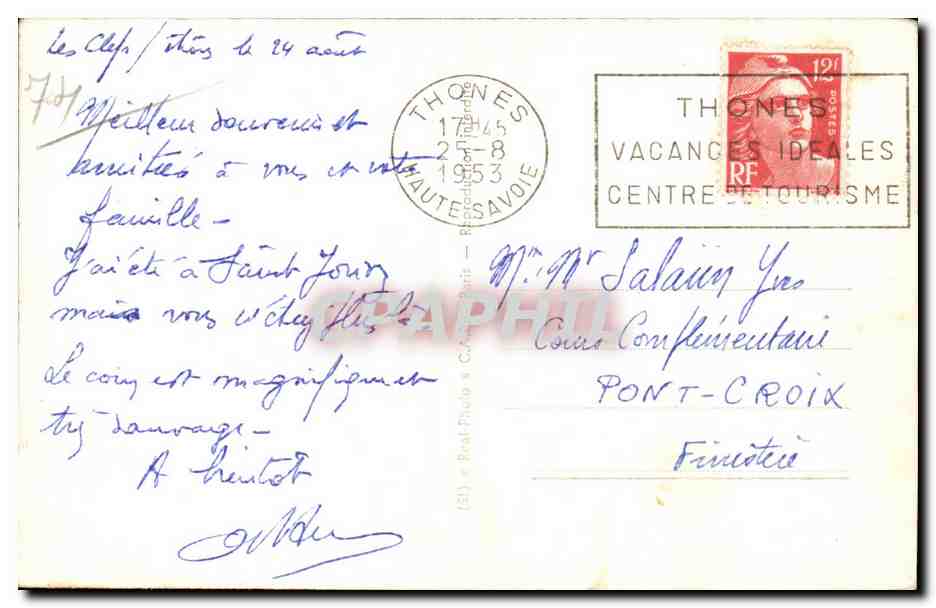 Les Clefs / Thônes le 24 août
74
Meilleurs souvenirs et
amitiés à vous et votre
famille -
J'ai été à Saint
mais vous n'étiez plus là.
Le coin est magnifique et
très sauvage -
A bientôt
THONES
17H45
25-8
1953
HAUTE-SAVOIE
12F
POSTES
RF
THONES
VACANCES IDEALES
CENTRE DE TOURISME
Mr Salaün Yves
Cours Complémentaire
PONT-CROIX
Finistère
« Real-Photo » C.A.P. Paris — Reproduction interdite
CPAPHIL